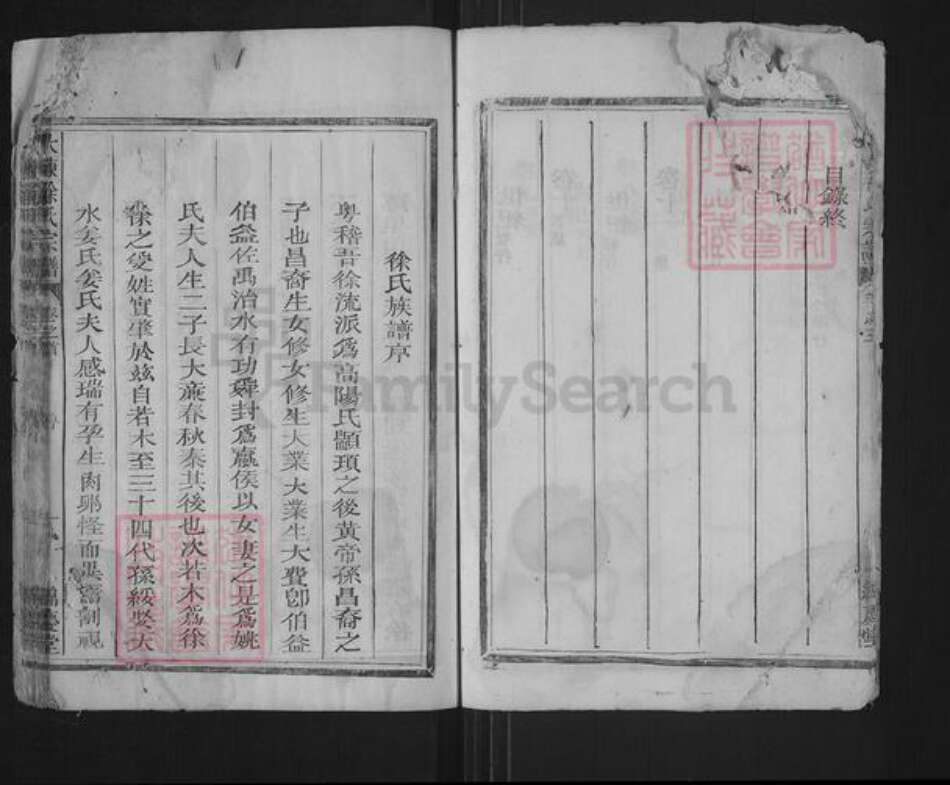 目錄終
徐氏族譜序
粵稽昔徐流派為高陽氏顓頊之後黃帝孫昌裔之
子也昌裔生女修女修生大業大業生大費卽伯益
伯益佐禹治水有功舜封為嬴侯以女妻之是為姚
氏夫人生二子長大廉春秋秦其後也次若木為徐
徐之受姓實肇於玆自若木至三十四代孫綏娶大
水姜氏姜氏夫人感瑞有孕生肉卵怪而棄 割視
FamilySearch